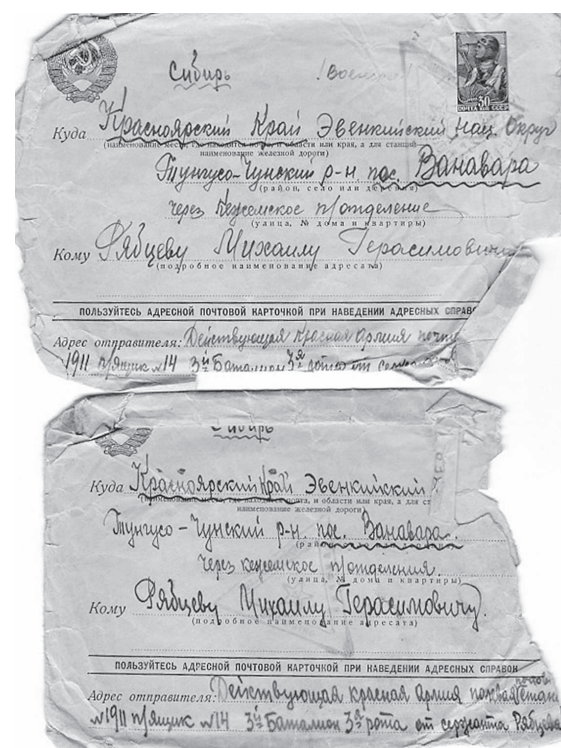 Сибирь
30
ПОЧТА СССР
Куда Красноярский Край Эвенкийский Нац. Округ
(наименование места, где находится почта, и области или края, а для станций
наименование железной дороги)
Тунгусо-Чунский р-н. пос. Ванавара
(район, село или деревня)
через Кежемское п/отделение
(улица, № дома и квартиры)
Кому Рябцеву Михаилу Герасимовичу
(подробное наименование адресата)
ПОЛЬЗУЙТЕСЬ АДРЕСНОЙ ПОЧТОВОЙ КАРТОЧКОЙ ПРИ НАВЕДЕНИИ АДРЕСНЫХ СПРАВО
Адрес отправителя: Действующая Красная Армия
1911 п/ящик №14 3й Баталион 3я рота от
Сибирь
Куда Красноярский край Эвенкийский
и области или края, а для ст
наименование железной дороги)
Тунгусо-Чунский р-н. пос. Ванавара.
(рай
через кежемское п/отделения.
(улица, № дома и квартиры)
Кому Рябцеву Михаилу Герасимовичу.
(подробное наименование адресата)
ПОЛЬЗУЙТЕСЬ АДРЕСНОЙ ПОЧТОВОЙ КАРТОЧКОЙ ПРИ НАВЕДЕНИИ АДРЕСНЫХ СПРАВОК
Адрес отправителя: Действующая красная Армия
№1911 п/ящик №14 3й Баталион 3я рота от сержанта Рябцева